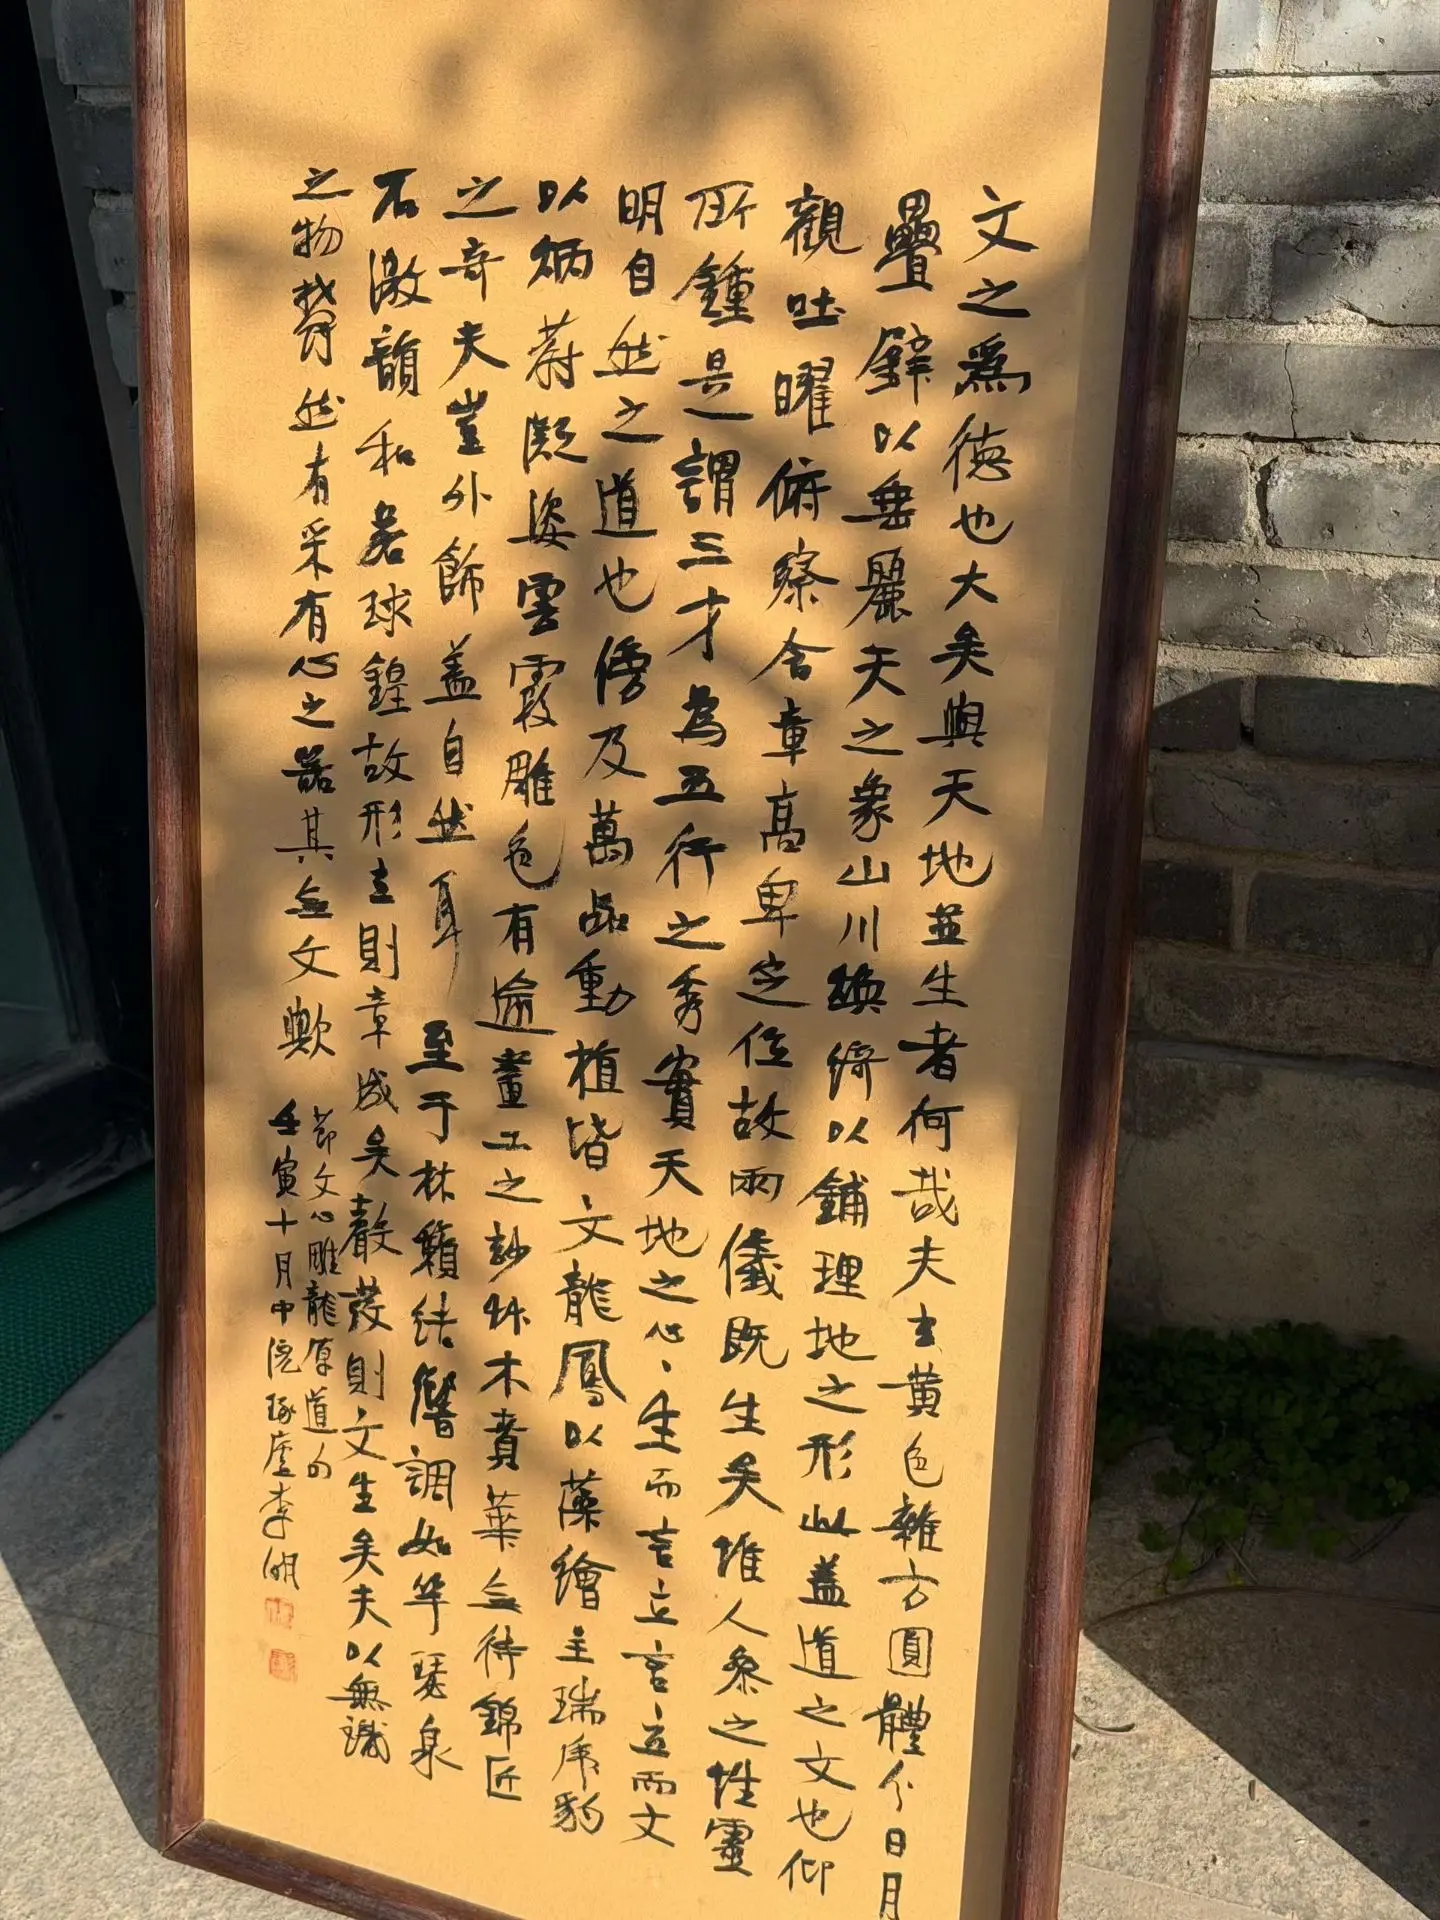 文之爲德也大矣與天地並生者何哉夫玄黃色雜方圓體分日月
疊鐴以垂麗天之象山川煥綺以鋪理地之形此蓋道之文也仰
觀吐曜俯察含章高卑定位故兩儀既生矣惟人參之性靈
所鍾是謂三才為五行之秀實天地之心、生而言立言立而文
明自然之道也傍及萬品動植皆文龍鳳以藻繪呈瑞虎豹
以炳蔚凝姿雲霞雕色有逾畫工之妙草木賁華無待錦匠
之奇夫豈外飾蓋自然耳至于林籟結響調如竽瑟泉
石激韻和若球鍠故形立則章成矣聲發則文生矣夫以無識
之物鬱然有采有心之器其無文歟
節文心雕龍原道句
壬寅十月中浣琢廬李明